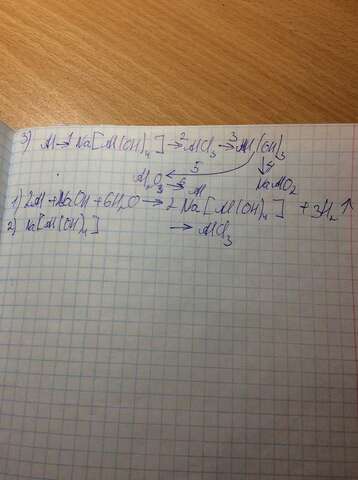 3) Al →¹ Na[Al(OH)₄] →² AlCl₃ →³ Al(OH)₃
5 4
Al₂O₃ →⁶ Al NaAlO₂
1) 2Al + NaOH + 6H₂O → 2 Na[Al(OH)₄] + 3H₂↑
2) Na[Al(OH)₄] → AlCl₃